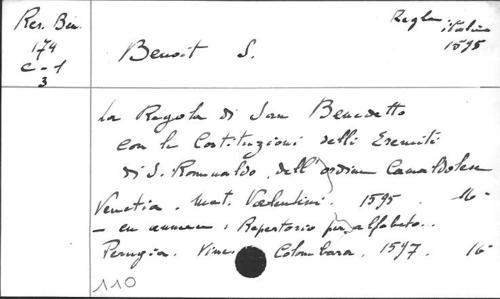 Res. Ben.
174
C-1
3
Benoit S.
Regla italien
1595
La Regola di San Benedetto
con le Costituzioni delli Eremiti
di S. Romualdo, dell'ordine Camaldolese
Venetia. Mat. Valentini. 1595. 16-
- en annexe : Repertorio per alfabeto..
Perugia. Colombara. 1597. 16-
110